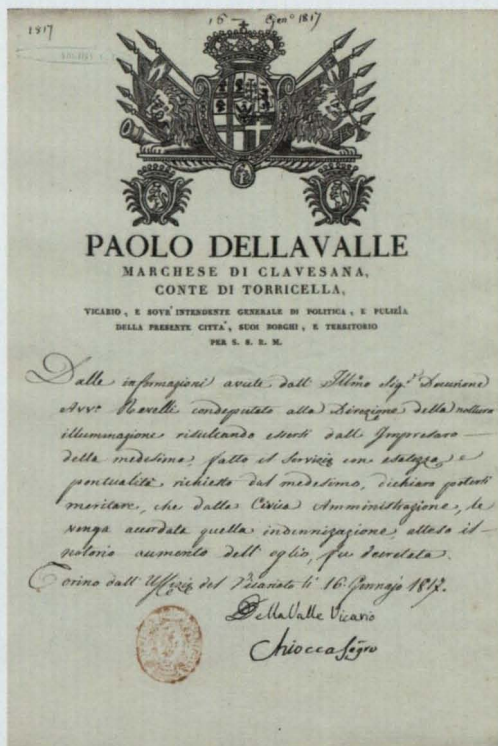 1817
16 — Gen.º 1817
PAOLO DELLAVALLE
MARCHESE DI CLAVESANA,
CONTE DI TORRICELLA,
VICARIO, E SOVR'INTENDENTE GENERALE DI POLITICA, E PULIZÌA
DELLA PRESENTE CITTA', SUOI BORGHI, E TERRITORIO
PER S. S. R. M.
Dalle informazioni avute dall' Ill.mo Sig.r Decurione
Avv.º Revelli condeputato alla Direzione della notturna
illuminazione risultando essersi dall' Impresaro —
della medesima, fatto il servizio con esatezza, e
pontualità richiesto dal medesimo, dichiaro potersi
meritare, che dalla Civica Amministrazione, le
venga accordata quella indennizazione, atteso il —
notorio aumento dell' oglio, fu decretata.
Torino dall' Uffizio del Vicariato li 16 Gennajo 1817.
DellaValle Vicario
Chiocca Segro